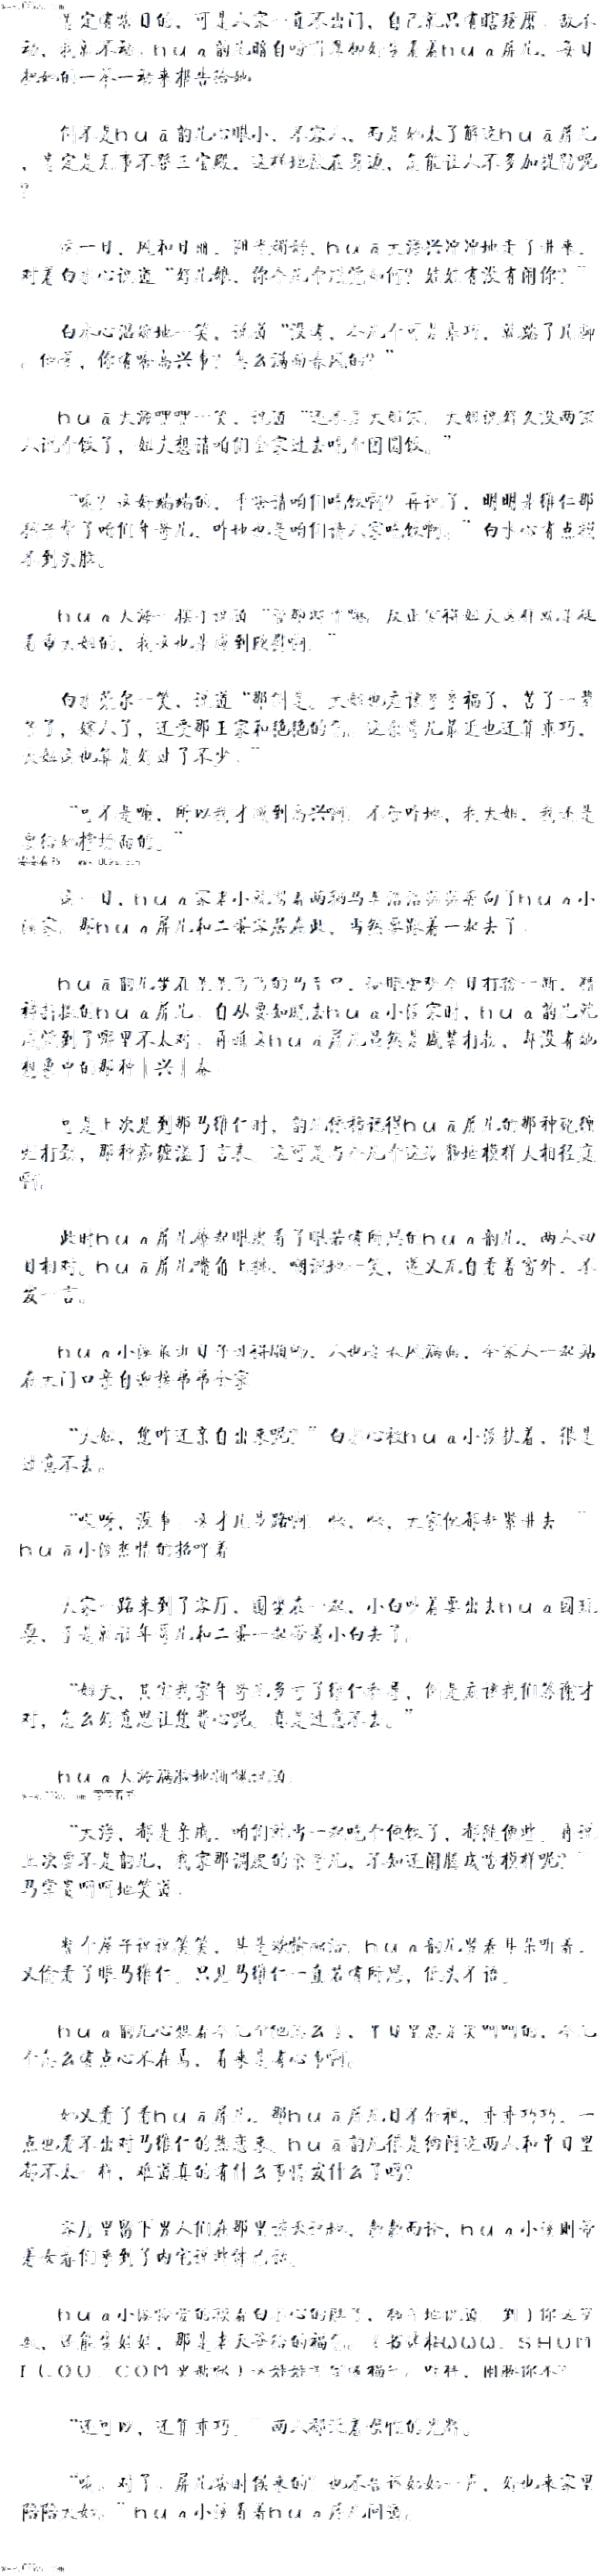 肯定有猫目的，可是人家一直不出门，自己就只有瞎琢磨，敌不
动，我就不动，ｈｕā韵儿暗自吩咐
看着ｈｕā屏儿，每日
把她的一举一动来报告给她
倒不是ｈｕā韵儿心眼小，不容人，而是她太了解这ｈｕā屏儿
，肯定是无事不登三宝殿，这样地放在身边，怎能让人不多加提防呢
？
这一日，风和日丽，阳光
，ｈｕā大海兴冲冲地走了进来，
对着白水心说道“好儿娘，你今儿个感觉如何？娃娃有没有闹你？”
白水心温婉地一笑，说道“没有，今儿个可是乖巧，就踹了几脚
。他爹，你有啥高兴事？怎么满面春风的？”
ｈｕā大海嘿嘿一笑，说道“还不是大姐家，大姐说好久没两家
人说个饭了，姐夫想请咱们全家过去吃个团圆饭。”
“咦？这好端端的，干啥请咱们吃饭啊？再说了，明明是维仁那
孩子帮了咱们年哥儿，咋地也是咱们请人家吃饭啊。”白水心有点摸
不到头脑。
ｈｕā大海一摆手说道“管那些干嘛，反正觉得姐夫这样就是疑
看重大姐的，我这也是感到欣慰啊。”
白水莞尔一笑，说道“那倒是。大姐也应该享享福了，苦了一辈
子了，嫁人了，还受那王家和艳艳的气。这余哥儿最近也还算乖巧，
大姐这也算是好过了不少。”
“可不是嘛，所以我才感到高兴啊。不管咋地，我大姐，我还是
要给她撑场面的。”
这一日，ｈｕā家老小就驾着两辆马车浩浩荡荡奔向了ｈｕā小
溪家，那ｈｕā屏儿和二蛋客居在此，当然要跟着一起去了。
ｈｕā韵儿坐在
的马车里，
今日打扮一新，精
神抖擞的ｈｕā屏儿，自从要知晓去ｈｕā小溪家时，ｈｕā韵儿就
感觉到了哪里不太对，再瞧这ｈｕā屏儿虽然是盛装打扮，却没有她
想象中的那种｜兴｜奋
可是上次见到那马维仁时，韵儿依稀记得ｈｕā屏儿的那种死缠
烂打劲，那种痴缠溢于言表，这可是与今儿个这恬静地模样大相径庭
啊。
此时ｈｕā屏儿撩起眼皮看了眼若有所思的ｈｕā韵儿，两人四
目相对，ｈｕā屏儿嘴角上翘，嘲讽地一笑，遂又兀自看着窗外，不
发一言。
ｈｕā小溪最近日子过得顺吻，人也是春风满面，全家人一起站
在大门口亲自迎接弟弟全家
“大姐，您咋还亲自出来呢？”白水心被ｈｕā小溪扶着，很是
过意不去。
“哎呀，没事，这才几步路啊，哈，哈，大家伙都赶紧进去。”
ｈｕā小溪热情的招呼着
大家一路来到了客厅，围坐在一起，小白吵着要出去ｈｕā园玩
耍，于是就让年哥儿和二蛋一起带着小白去了。
“姐夫，其实我家年哥儿多亏了维仁看着，倒是应该我们答谢才
对，怎么好意思让您费心呢。真是过意不去。”
ｈｕā大海满脸地
说道
“大海，都是亲戚，咱们就当一起吃个便饭了，都随便些。再说
上次要不是韵儿，我家那调皮的余哥儿，不知还闹腾成啥模样呢？”
马掌贵呵呵地笑道。
整个屋子说说笑笑，甚是欢愉融洽，ｈｕā韵儿竖着耳朵听着，
又偷看了眼马维仁，只见马维仁一直若有所思，低头不语。
ｈｕā韵儿心想着今儿个他怎么了，平日里总是笑呵呵的，今儿
个怎么有点心不在焉，看来是有心事啊。
她又看了看ｈｕā屏儿，那ｈｕā屏儿目不斜视，乖乖巧巧，一
点也看不出对马维仁的热恋来，ｈｕā韵儿很是纳闷这两人和平日里
都不太一样，难道真的有什么事情发什么了吗？
客厅里留下男人们在那里谈天说地，款款而谈，ｈｕā小溪则带
着女眷们来到了内宅说些体己话。
ｈｕā小溪怜爱的瞅着白水心的肚子，
地说道
你这岁
数，还能生娃娃，那是老天爷给的福气。（书迷楼ＷＷＷ．ＳＨＵＭ
ＩＬＯＵ．ＣＯＭ更新快）这娃娃
“还可以，还算乖巧。”两人都泛着母性的光辉。
“咦，对了，屏儿啥时候来的？也不告诉姑姑一声，好也来家里
陪陪大姑。”ｈｕā小溪看着ｈｕā屏儿问道。